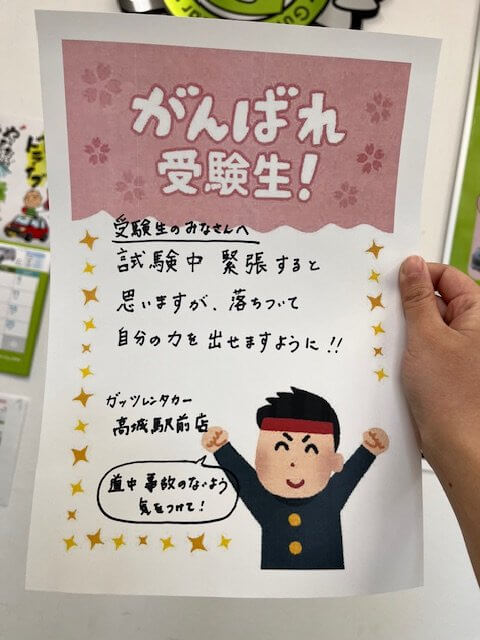 がんばれ
受験生!
受験生のみなさんへ
試験中 緊張すると
思いますが、落ちついて
自分の力を出せますように!!
ガッツレンタカー
高城駅前店
道中事故のないよう
気をつけて!